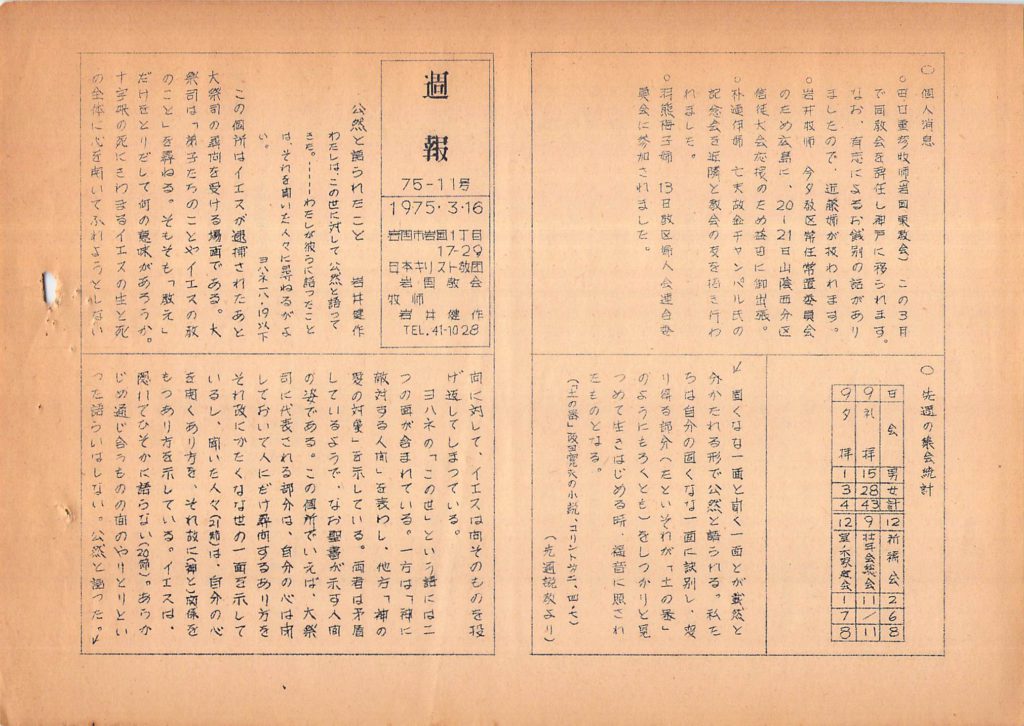 週報
75-11号
1975・3・16
岩国市岩国1丁目
17-29
日本キリスト教団
岩国教会
牧師
岩井健作
TEL.41-1028
公然と語られたこと 岩井健作
わたしは、この世に対して公然と語って
きた。……わたしが彼らに語ったこと
は、それを聞いた人々に尋ねるがよ
い。 ヨハネ一八・19以下
この個所はイエスが逮捕されたあと
大祭司の尋問を受ける場面である。大
祭司は「弟子たちのことやイエスの教
のこと」を尋ねる。そもそも「教え」
だけをとりだして何の意味があろうか。
十字架の死にきわまるイエスの生と死
の全体に心を開いてふれようとしない
問に対して、イエスは問そのものを投
げ返してしまっている。
ヨハネの「この世」という語には二
つの面が含まれている。一方は「神に
敵対する人間」を表わし、他方「神の
愛の対象」を示している。両者は矛盾
しているようで、なお聖書が示す人間
の姿である。この個所でいえば、大祭
司に代表される部分は、自分の心は閉
しておいて人にだけ尋問するあり方を
それ故にかたくなな世の一面を示して
いるし、聞いた人々(21節)は、自分の心
を開くあり方を、それ故に神と関係を
もつあり方を示している。イエスは、
隠れてひそかに語らない(20節)。あらか
じめ通じ合うものの間のやりとりとい
った語らいはしない。公然と語った。↙
↙固くなな一面と開く一面とが截然と
分かたれる形で公然と語られる。私た
ちは自分の固くなな一面に訣別し、変
り得る部分(たといそれが「土の器」
のようにもろくとも)をしっかりと見
つめて生きはじめる時、福音に照され
たものとなる。
(「土の器」阪田寛夫の小説、コリント力二、四・七)
(先週説教より)
○ 個人消息
○田口重彦牧師(岩国東教会) この3月
で同教会を辞任し神戸に移られます。
なお、有志によるお餞別の話があり
ましたので、近藤姉が扱われます。
○岩井牧師 今夕教区常任常置委員会
のため広島に、20-21日山陰西分区
信徒大会応援のため益田に御出張。
○朴達伊姉 七末故金チャンパル氏の
記念会を近隣と教会の友を招き行わ
れました。
○羽熊梅子姉 13日教区婦人会連合委
員会に参加されました。
○ 先週の集会統計
日 会 男 女 計
9 礼拝 15 28 43
9 夕拝 1 3 4
12 祈祷会 2 6 8
9 壮年会総会 11 / 11
12 室ノ木家庭会 1 7 8